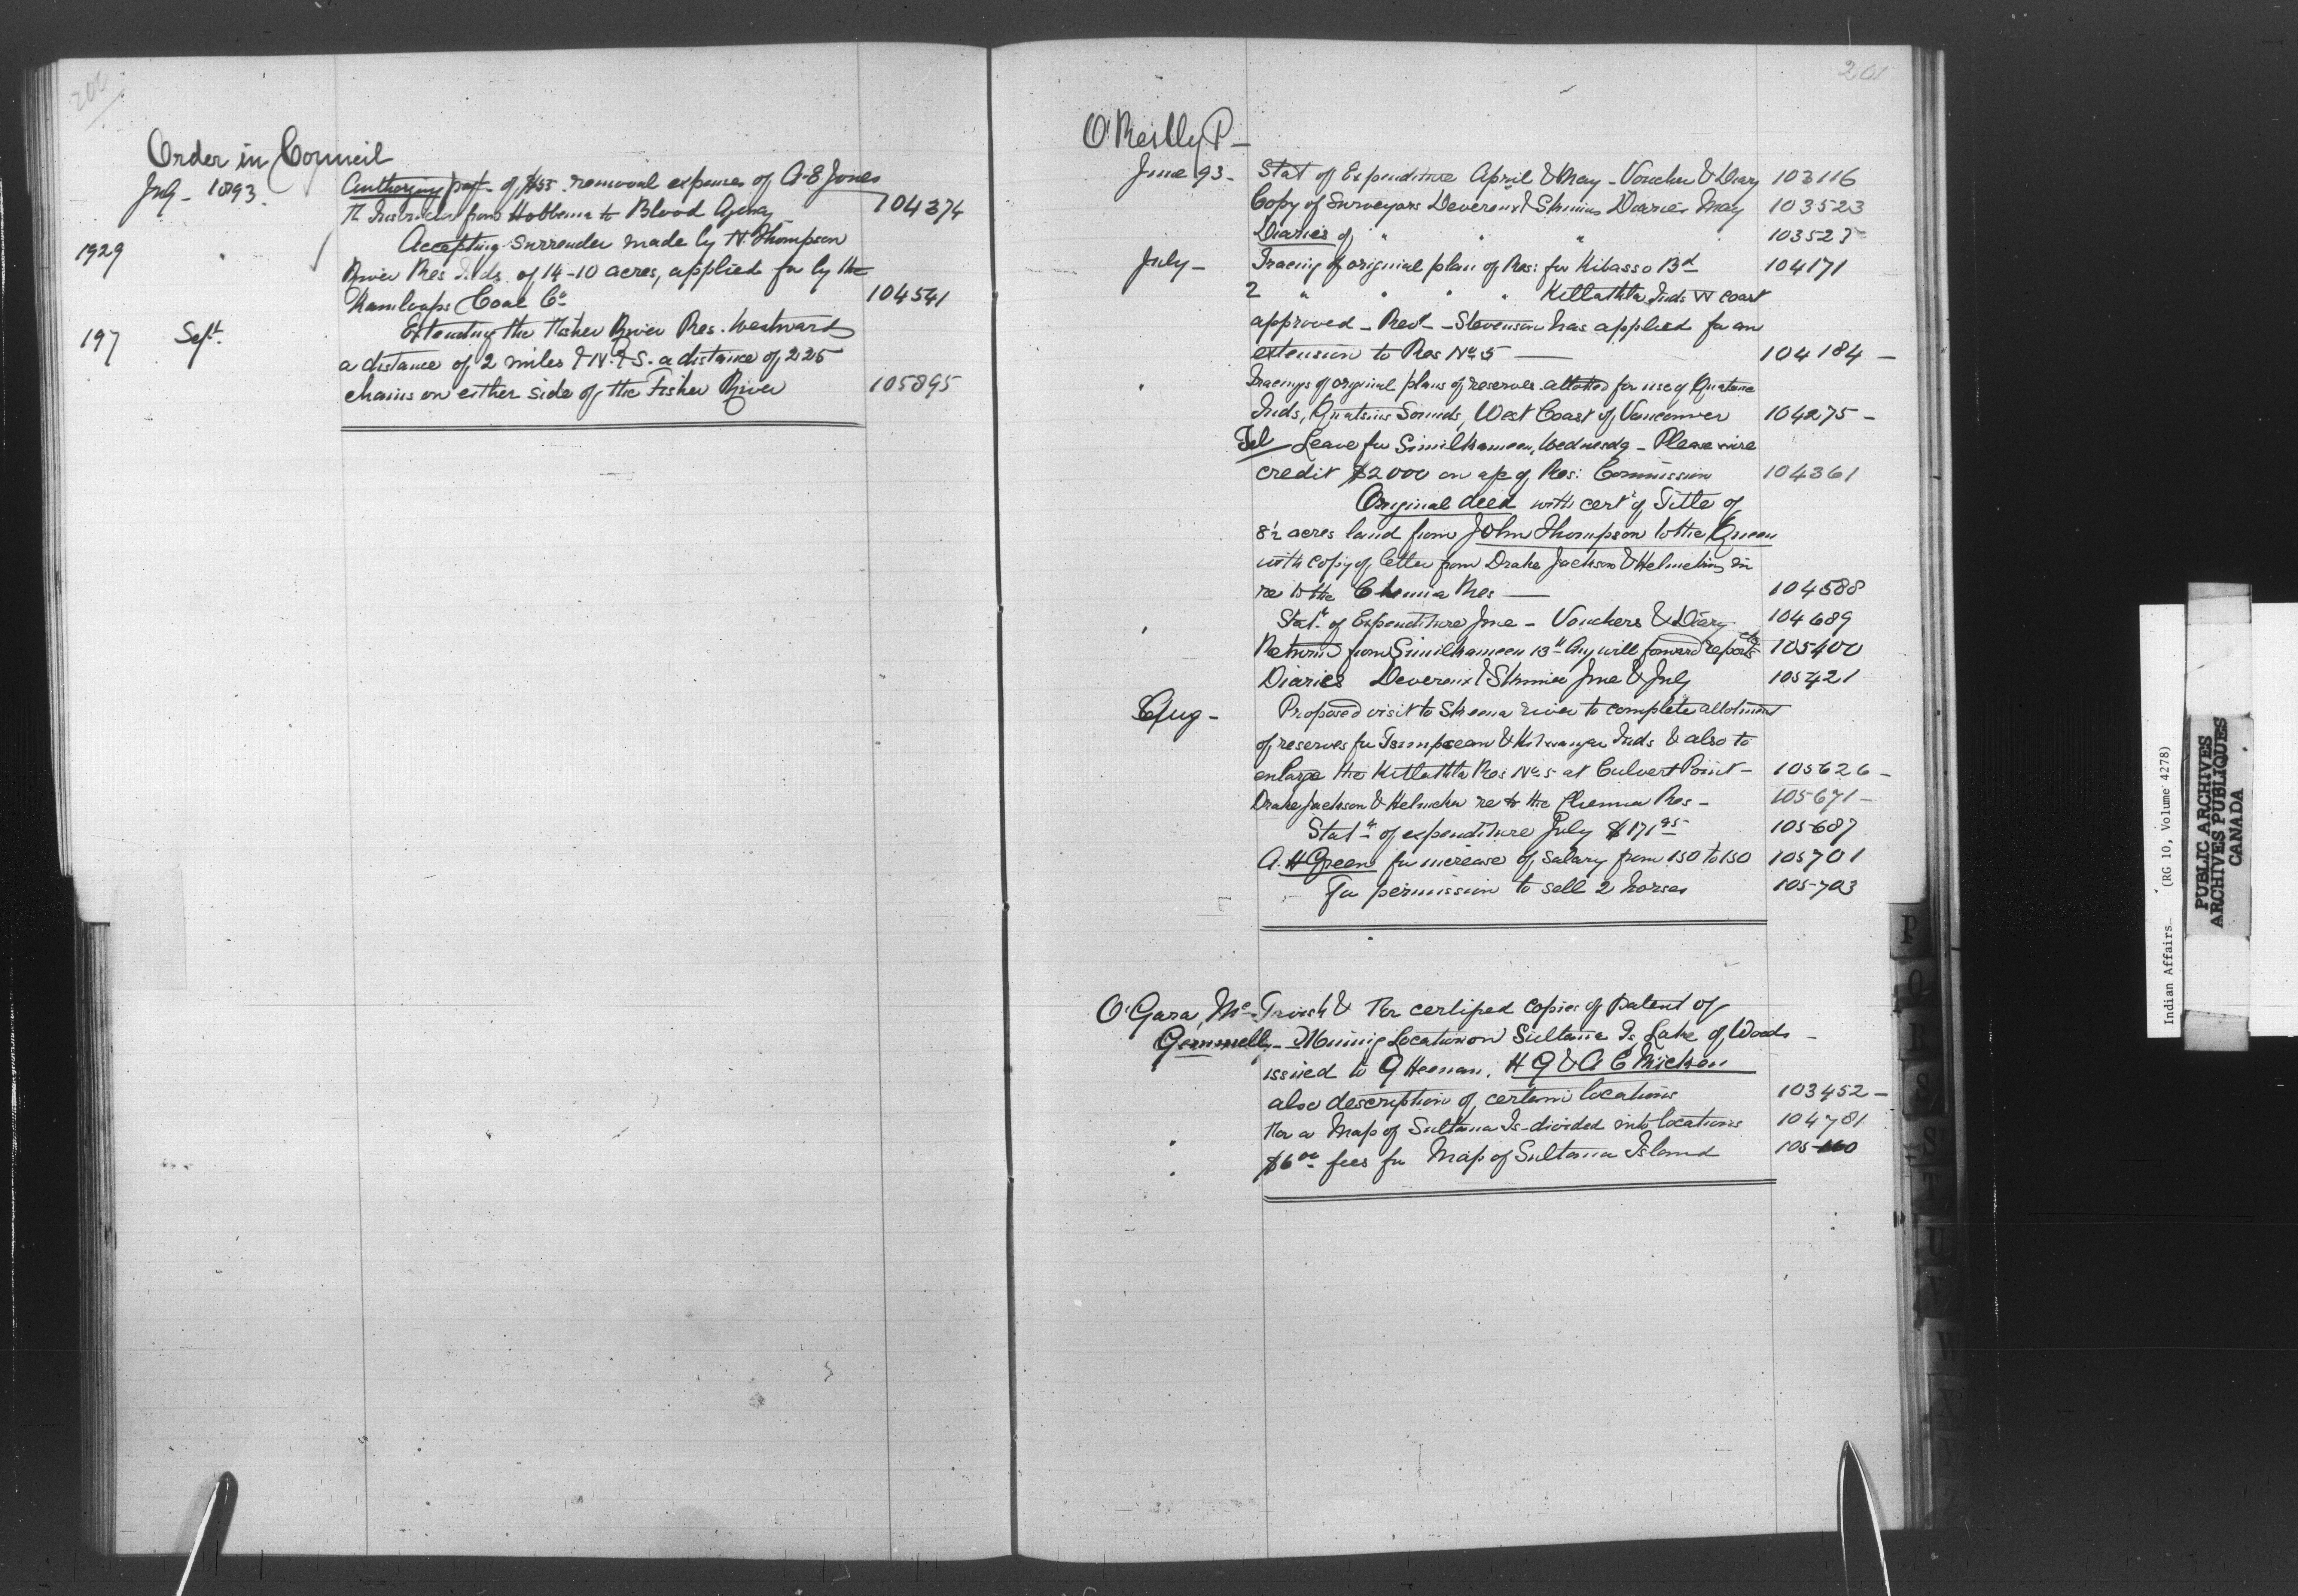 200
Order in Council
July - 1893. Authorizing payt of $55 removal expenses of A. E. Jones
Instructor from Hobbema to Blood Agency 104374
1929 " Accepting Surrender made by N. Thompson
River Res Inds. of 14-10 acres, applied for by the
Kamloops Coal Co 104541
197 Sept. Extending the Fisher River Res. Westward
a distance of 2 miles & N. & S. a distance of 225
chains on either side of the Fisher River 105895
201
O'Reilly P -
June 93 - Stat of Expenditure April & May - Voucher & Diary 103116
Copy of Surveyors Devereux & Skinners Diaries May 103523
Diaries of " " " 103523
July - Tracing of original plan of Res: for Kitasso Bd 104171
2 " " " " Kitlathla Inds W coast
approved - Revd - Stevenson has applied for an
extension to Res No 5 — 104184 -
" Tracings of original plans of reserves allotted for use of Quatsino
Inds, Quatsino Sounds, West Coast of Vancouver 104275 -
Tel Leave for Similkameen, Wednesdy - Please wire
credit $2000 on a/c of Res: Commission 104361
Original deed with certe of Title of
8½ acres land from John Thompson to the Queen
with copy of letter from Drake Jackson & Helmcken in
re to the Chemia Res — 104588
" Statt of Expenditure June - Vouchers & Diary 104689
Returned from Similkameen 13th Aug will forward reports etc 105400
Diaries Devereux & Skinner June & July 105421
Aug - Proposed visit to Skeena river to complete allotment
of reserves for Tsimpsean & Inds & also to
enlarge the Kitlathla Res No 5 at Culvert Point - 105626 -
Drake Jackson & Helmcken re to the Chemia Res - 105671 -
Statt of expenditure July $171 95 105687
A. H Green for increase of Salary from 130 to 150 105701
For permission to sell 2 horses 105703
O'Gara, Mc Tavish & For certified copies of Patent of
Gemmell - Mining Location on Sultana Is, Lake of Woods -
issued to G Heenan, H G & A C
also description of certain locations 103452 -
" For a Map of Sultana Is - divided into locations 104781
" $6 00 fees for Map of Sultana Island 105160
P
S
T
U
V
W
X
Indian Affairs. (RG 10, Volume 4278)
PUBLIC ARCHIVES
ARCHIVES PUBLIQUES
CANADA